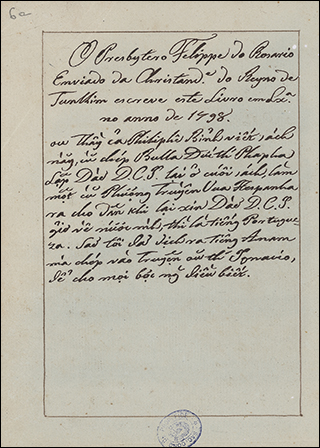 6a
O Presbytero Felippe do Rosario
Enviado da Christand.ᵉ do Reyno de
Tunkim escreve este Livro em Lx.ᵃ
no anno de 1798.
Philiphê Bỉnh viết, sách
nầy, cŭ chép Bulla Đức thánh Phapha
lập Dào D.C.J. lại ở cuối, sách, làm
một cŭ Phượng truyện Vua Hespanha
ra cho đến khi lại xin Dào D.C.J.
giờ về nước mình, thì là tiếng Portugue-
za. Sao tôi dã dịch ra tiếng Anam
mà chép vào truyện Ignacio,
dể cho mọi bậc người điều biết.